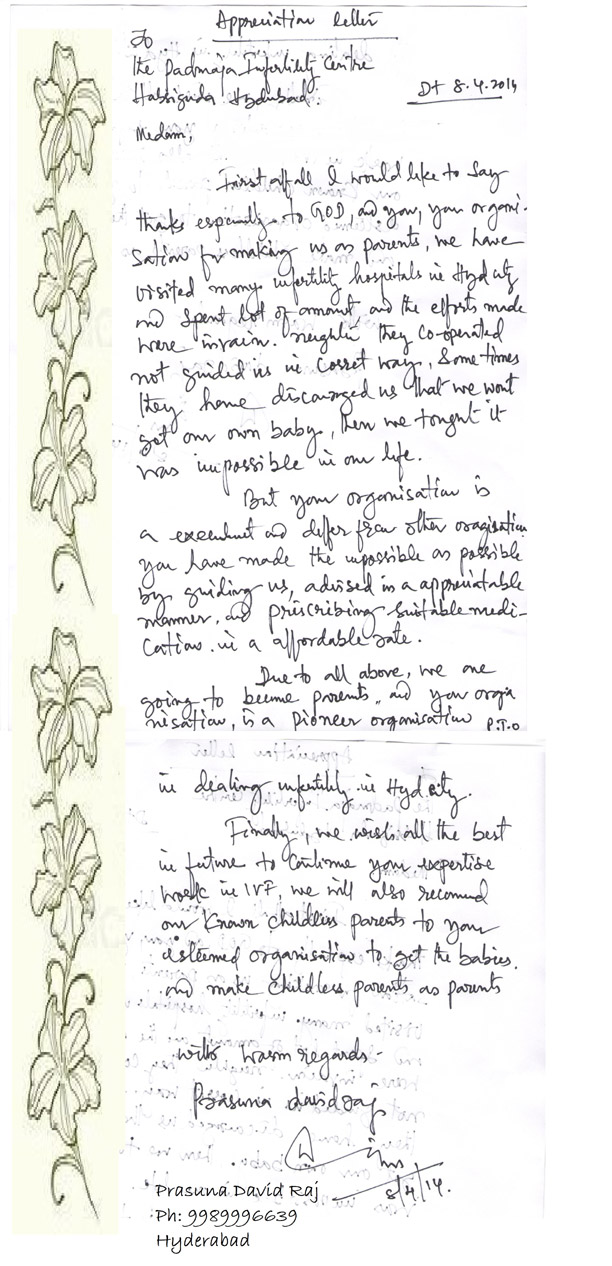 Appreciation letter
To
The Padmaja Infertility Centre
Habsiguda Hydubad.
Dt 8.4.2014
Medam,
First affall I would like to Say
thanks especially to GOD, and you, you organi-
sation for making us as parents, we have
visited many infertility hospitals in Hyd city
and spent lot of amount and the efforts made
were invain. neighter they co-operated
not guided us in Corret way, Some times
they have discouraged us that we wont
get our own baby, then we tought it
was impossible in our life.
But your organisation is
a execelunt and differ from other oragisation
you have made the impossible as possible
by guiding us, advised in a appreciatable
manner, and priscribing Suitable medi-
Cation. in a affordable rate.
Due to all above, we are
going to become parents, and your orga
nisation, is a pioneer organisation P.T.O
in dealing infertility in Hyd city.
Finally, we wish all the best
in future to Continue your expertise
work in IVF, we will also recomend
our Known childless parents to your
esteemed organisation to get the babies.
and make childless parents as parents
with warm regards -
Prasuna davidraj
8/4/14.
Prasuna David Raj
Ph: 9989996639
Hyderabad